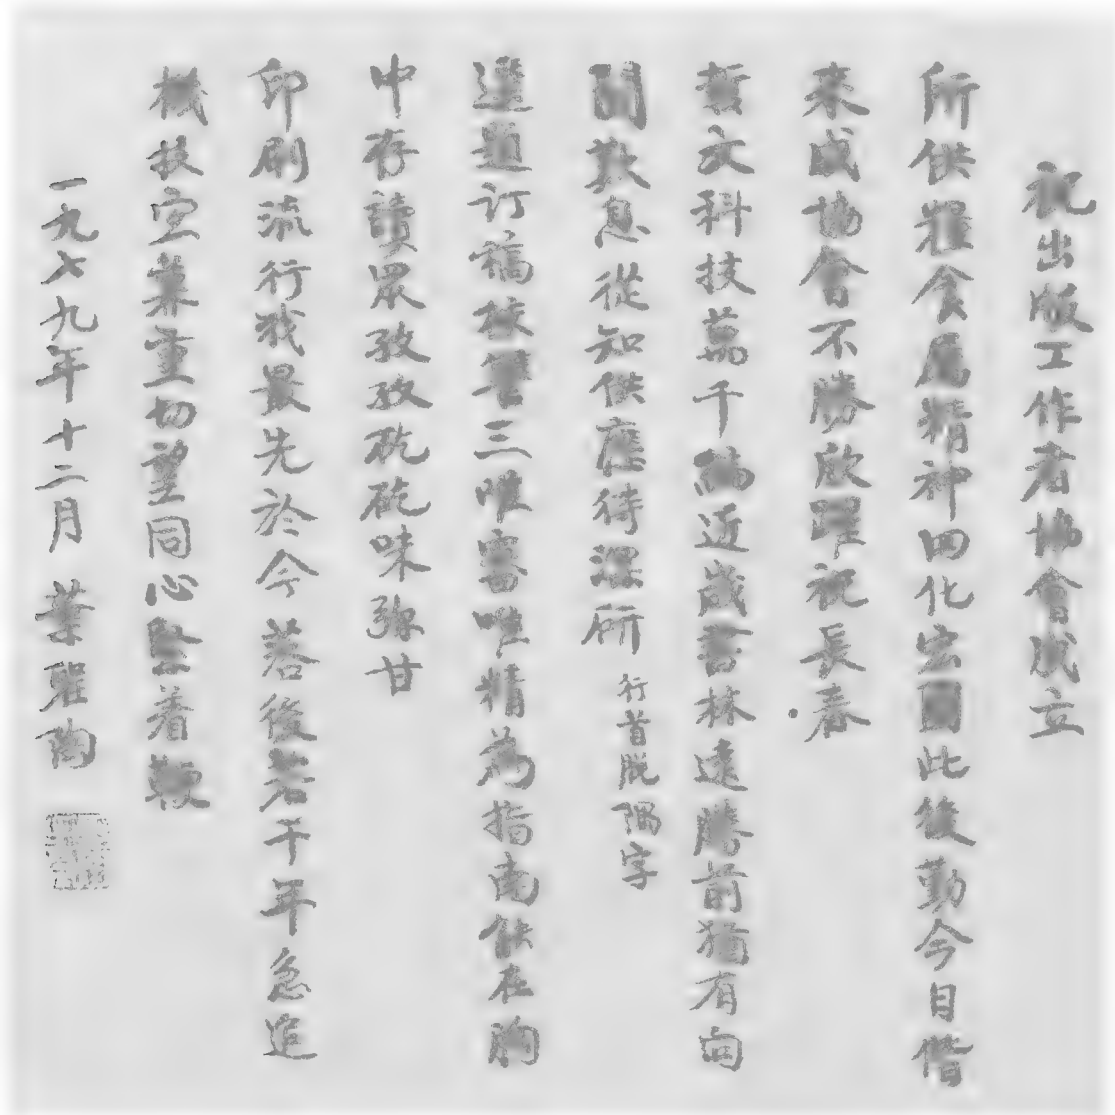 祝出版工作者協會成立
所供糧食屬精神四化宏圖此後勤今日偕
來成協會不勝欣躍祝長春
哲文科技萬千編近歲書林遠勝前猶有向
聞歎息從知供應待深研 行首脫隅字
選題訂稿校讐三唯審唯精為指南俱在胸
中存讀眾孜孜矻矻味弥甘
印刷流行我最先於今落後若干年急追
機技宜兼重切望同心堅着鞭
一九七九年十二月 葉聖陶